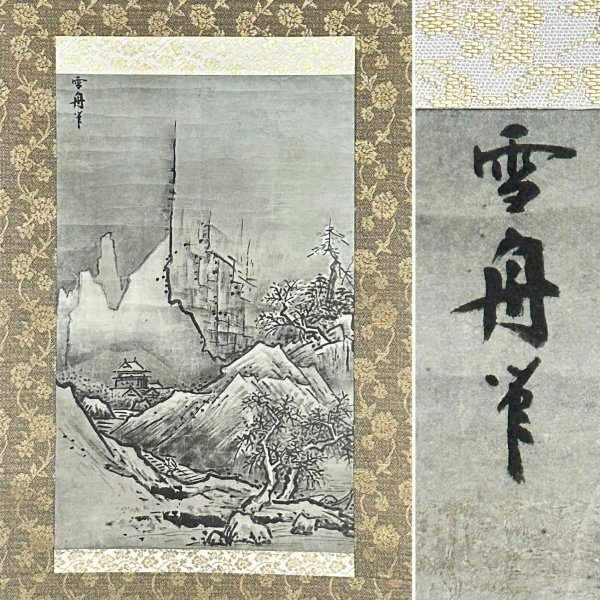 雪舟筆
雪舟筆